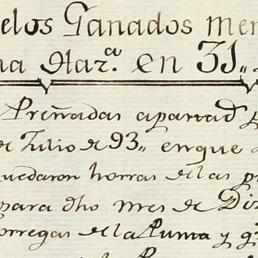 elos Ganados Men
na Naz.ª en 31,,
Preñadas apartad
e Julio de 93,, en que
quedaron horras de las p
para dho mes de Diz
orregas de la Puma y g